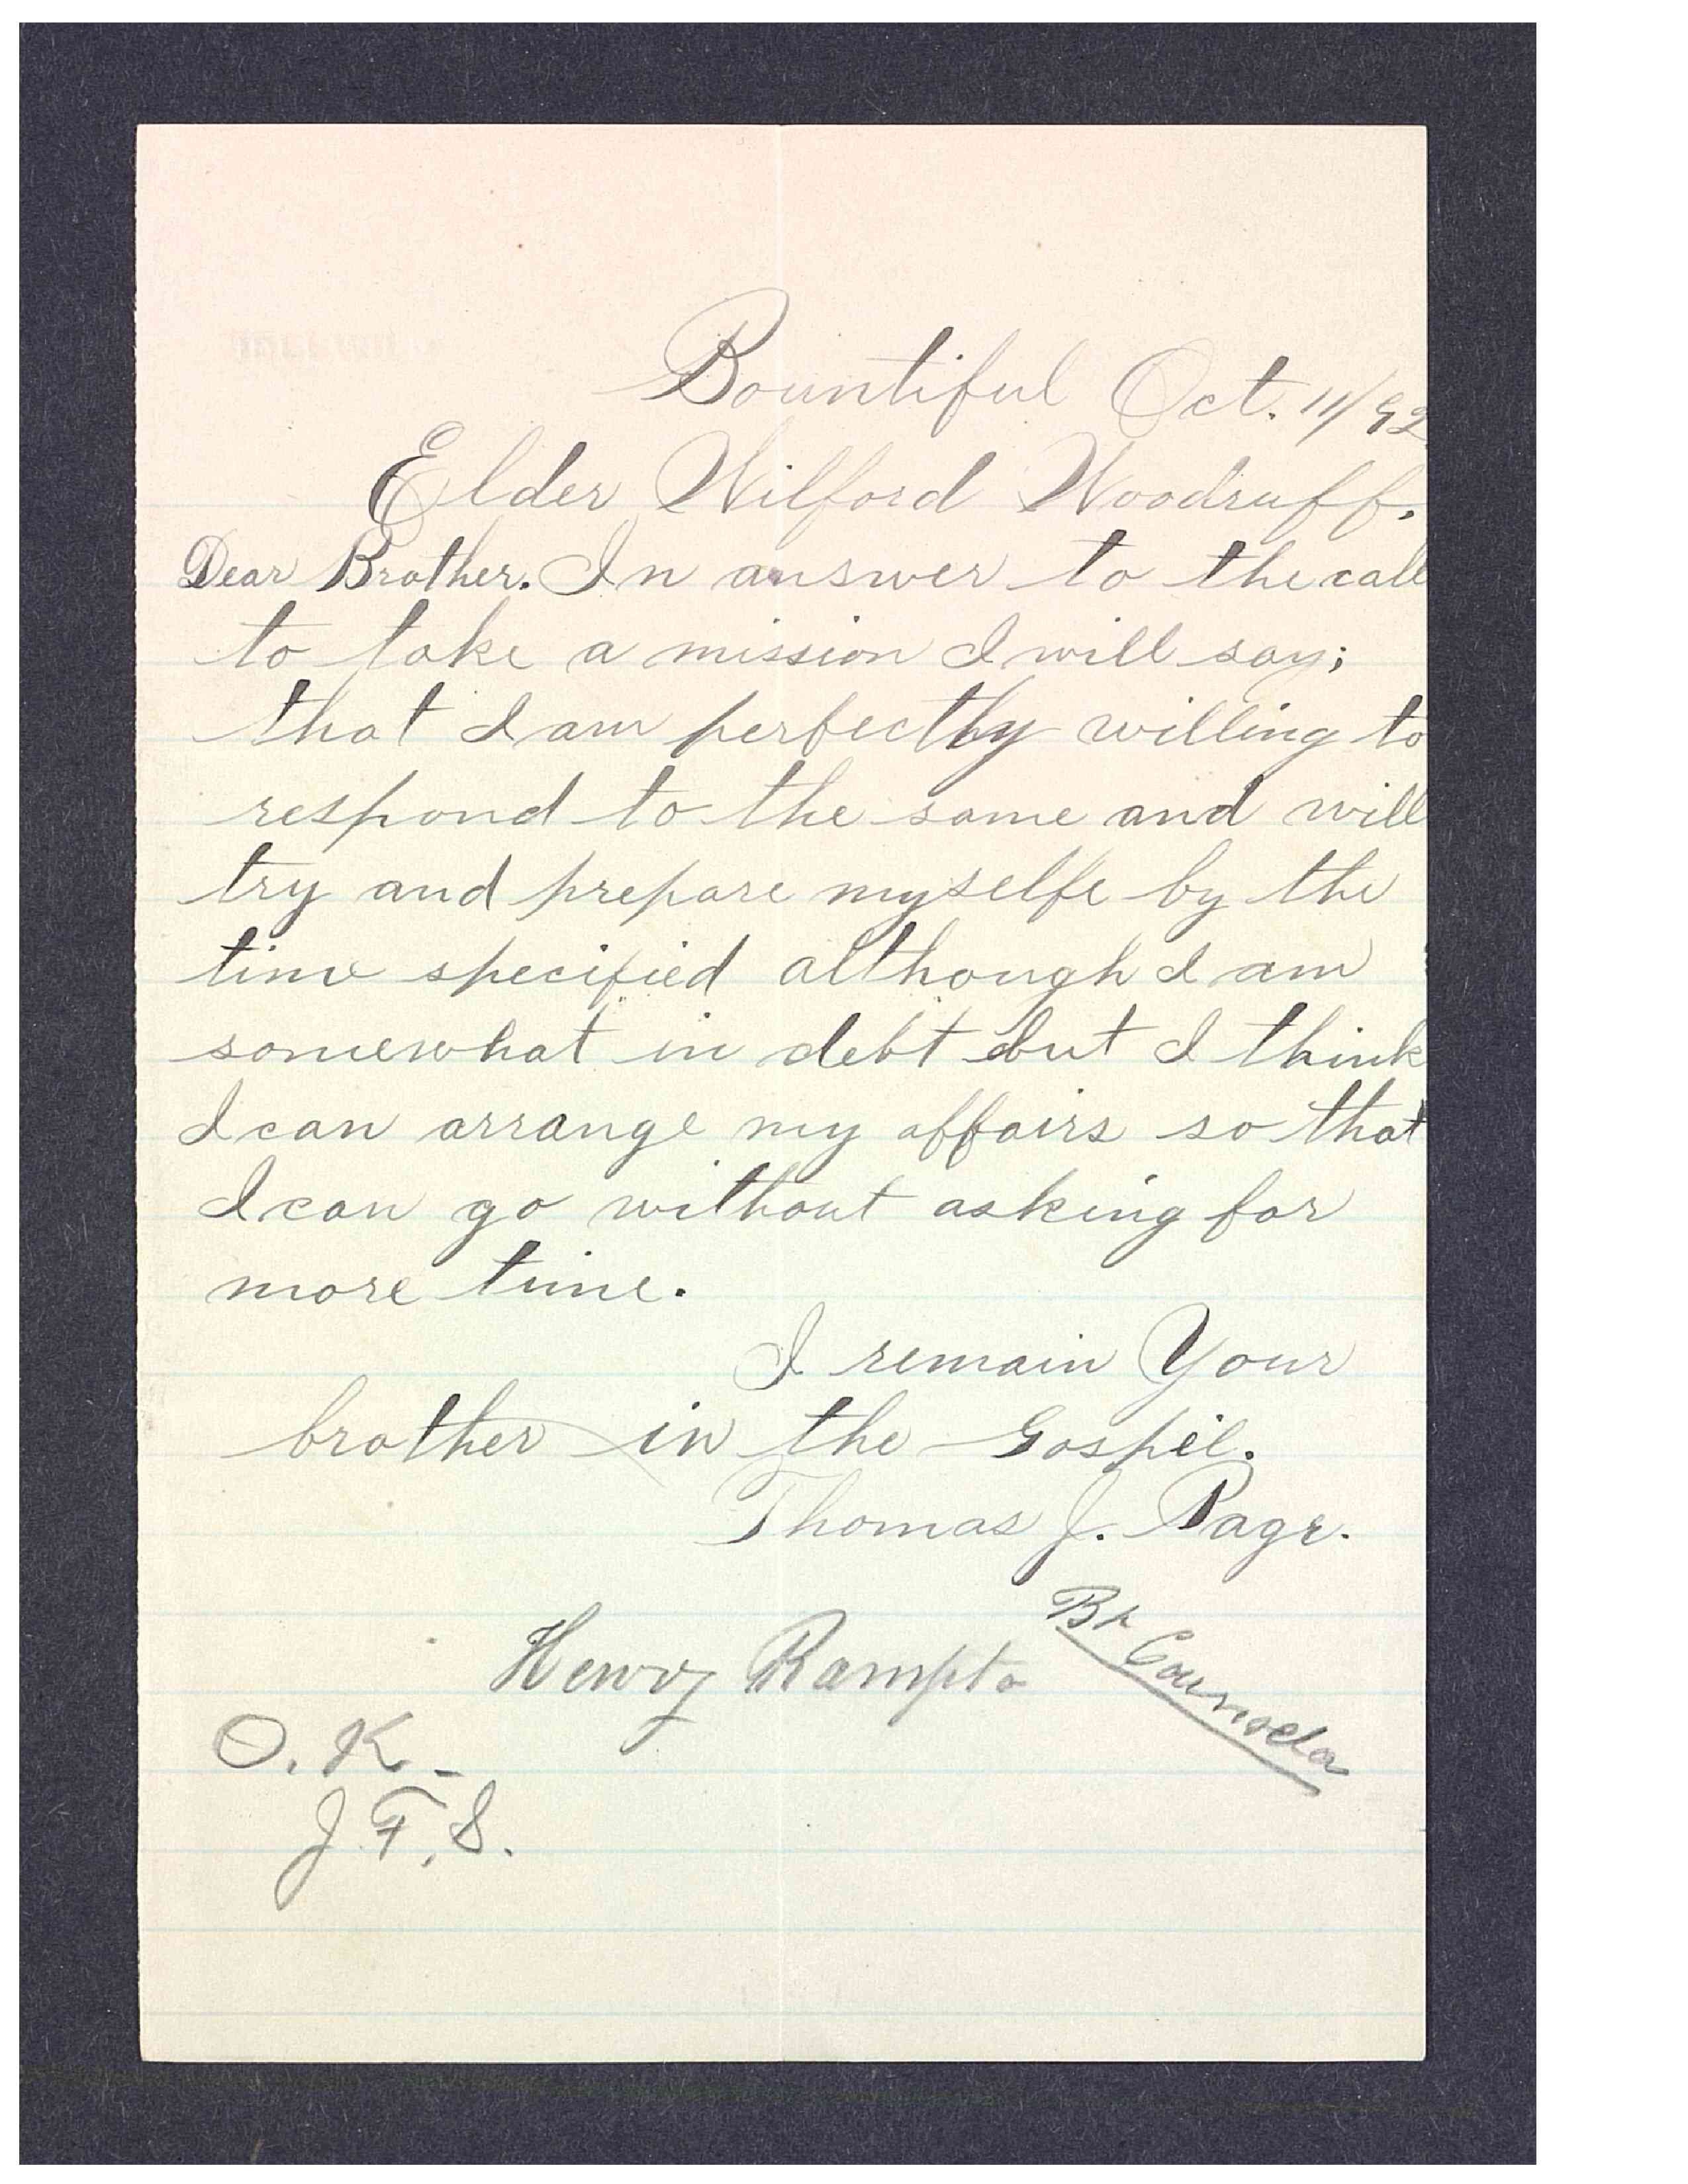 Bountiful Oct. 11/92
Elder Wilford Woodruff.
Dear Brother. In answer to the call
to take a mission I will say;
that I am perfectly willing to
respond to the same and will
try and prepare myselfe by the
time specified although I am
somewhat in debt but I think
I can arrange my affairs so that
I can go without asking for
more time.
I remain Your
brother in the Gospel.
Thomas J. Page.
Henry Rampto
Bp Counselor
O. K.
J. F. S.